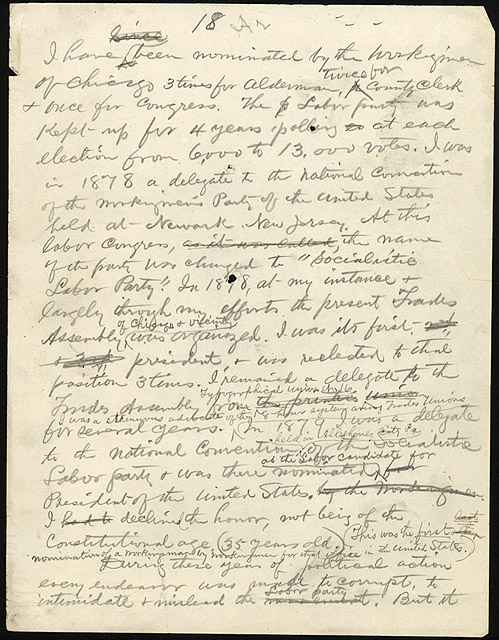 18
I have been nominated by the Workingmen
of Chicago 3 times for Alderman, twice for County Clerk
+ once for Congress. The Labor party was
Kept up for 4 years polling at each
election from 6000 to 13,000 votes. I was
in 1878 a delegate to the National Convention
of the workingmen's Party of the United States
held at Newark New Jersey. At this
labor Congress, as it was called the name
of the party was changed to "Socialistic
Labor Party". In 1878, at my instance +
largely through my efforts the present Trades
Assembly of Chicago + vicinity was organized. I was its first
president, + was reelected to that
position 3 times. I remained a delegate to the
Typographical Union No. 16
Trades Assembly from the printers union
was a strenuous advocate of the 8 hour system among Trades Unions
for several years. In 1879 I was a delegate
held in Allegheny City Pa
to the National Convention of the Socialistic
as the Labor candidate
Labor party + was there nominated for
President of the United States, by the Workingmen.
I had to declined the honor, not being of the
Constitutional age (35 years old) This was the first
nomination of a workingman by workingmen for that office in the United States.)
During these years of political action
every endeavor was made to corrupt, to
Labor party
intimidate + mislead the movement. But it